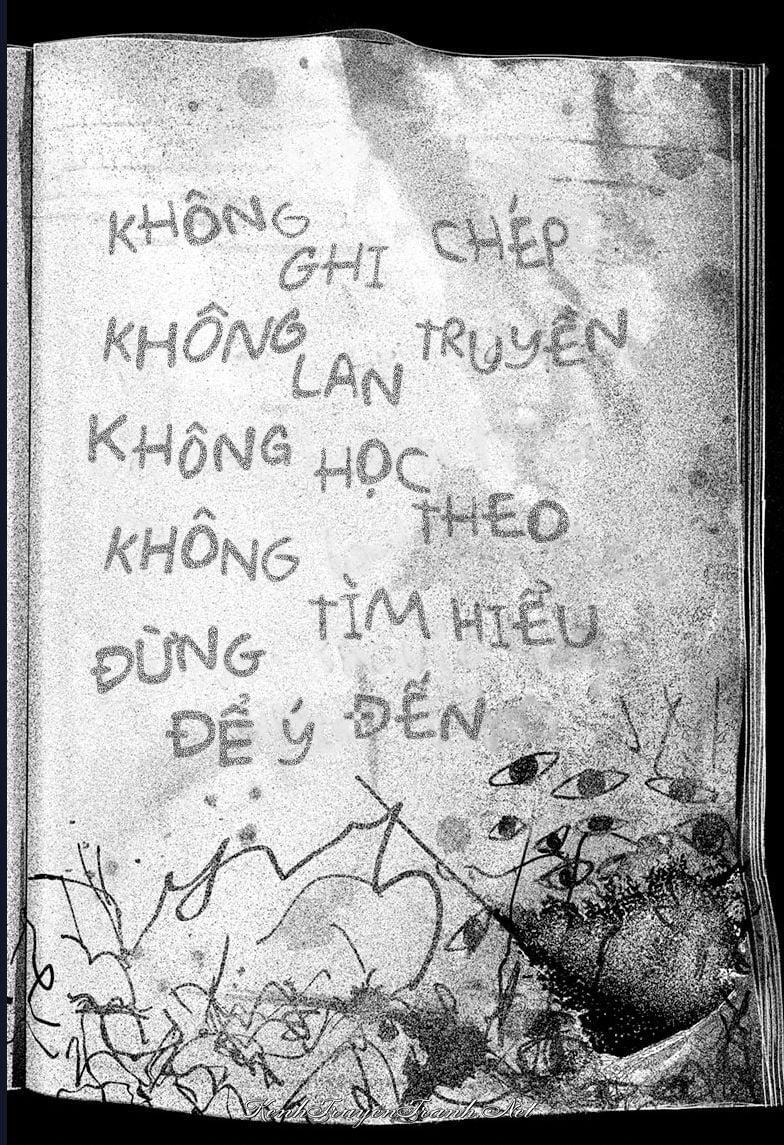 KHÔNG GHI CHÉP
KHÔNG LAN TRUYỀN
KHÔNG HỌC THEO
KHÔNG TÌM HIỂU
ĐỪNG ĐỂ Ý ĐẾN
KenhTruyenTranh.Net